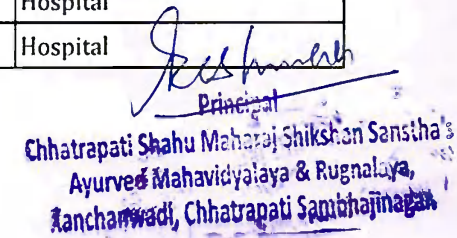 Hospital
Hospital
Principal
Chhatrapati Shahu Maharaj Shikshan Sanstha's
Ayurved Mahavidyalaya & Rugnalaya,
Kanchanwadi, Chhatrapati Sambhajinagar